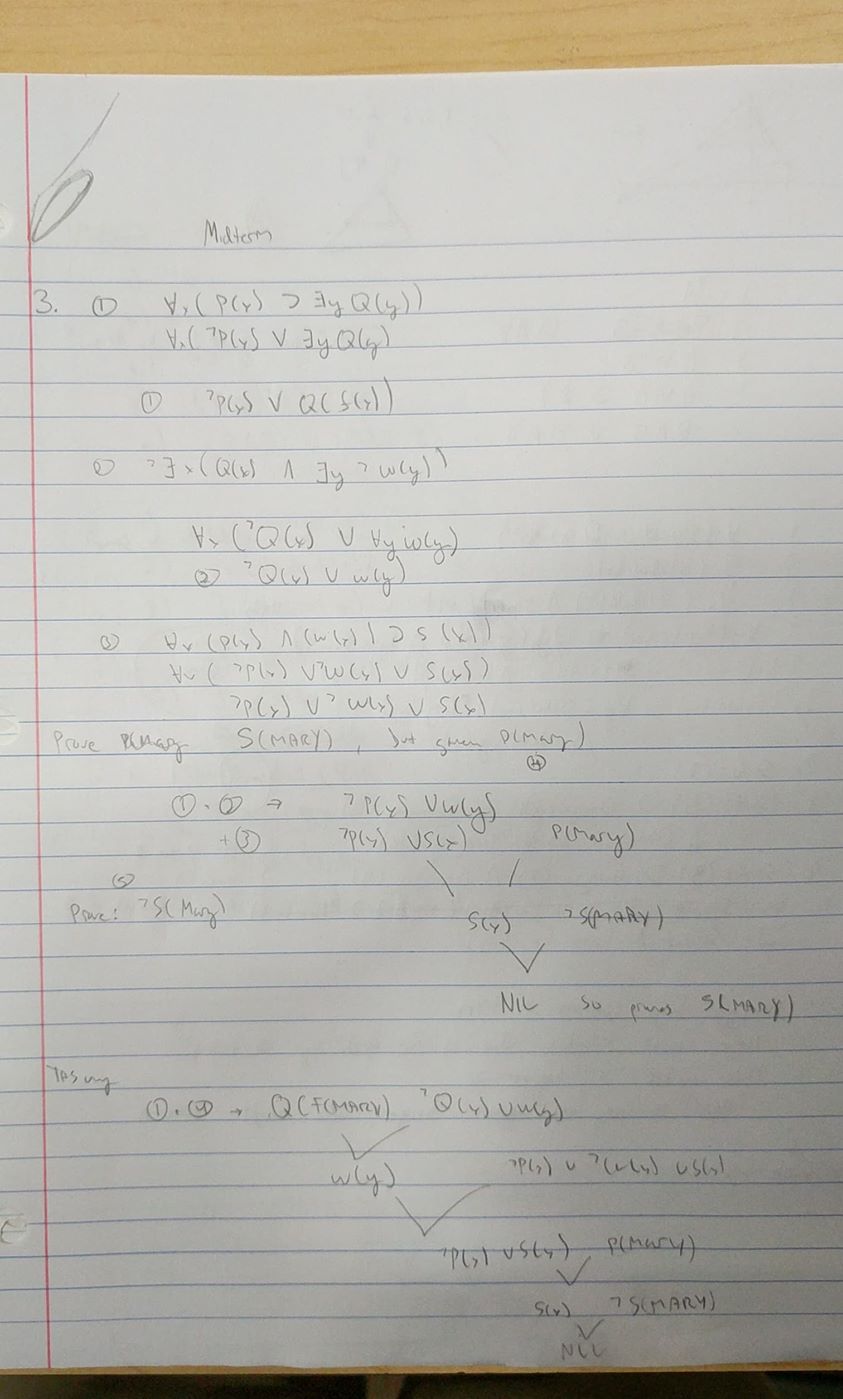 Midterm
3. ① ∀x(P(x) ⊃ ∃y Q(y))
∀x(¬P(x) ∨ ∃y Q(y)
① ¬P(x) ∨ Q(f(x))
② ¬∃x(Q(x) ∧ ∃y ¬w(y))
∀x(¬Q(x) ∨ ∀y w(y)
② ¬Q(x) ∨ w(y)
③ ∀x(P(x) ∧ (w(x)) ⊃ S(x))
∀x(¬P(x) ∨ ¬w(x) ∨ S(x))
¬P(x) ∨ ¬w(x) ∨ S(x)
Prove S(MARY), but given P(Mary)
④
①·② → ¬P(x) ∨ w(y)
+③ ¬P(x) ∨ S(x) P(Mary)
⑤
Prove: ¬S(Mary) S(x) ¬S(MARY)
NIL so proves S(MARY)
①·④ → Q(f(MARY) ¬Q(x) ∨ w(y)
w(y) ¬P(x) ∨ ¬(w(x) ∨ S(x)
¬P(x) ∨ S(x) P(MARY)
S(x) ¬S(MARY)
NIL